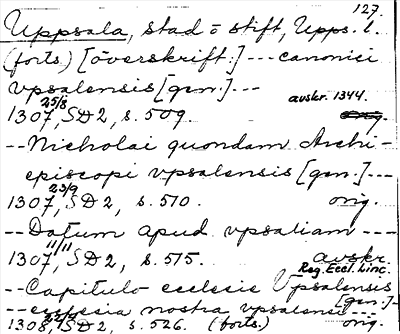 127.
Uppsala, stad o stift, Upps. l.
(forts.) [överskrift:] --- canonici
vpsalensis [gen.] ---
25/8 avskr. 1344.
1307, SD2, s. 509.
-- Nicholai quondam Archi-
episcopi vpsalensis [gen.] ---
23/9
1307, SD2, s. 510. orig.
-- Datum apud vpsaliam ---
11/11
1307, SD2, s. 515. avskr.
Reg. Eccl. Linc.
-- Capitulo ecclesie Vpsalensis
[gen.] --
-- ecclesia nostra vpsalensis ---
1308, SD2, s. 526. (forts.) orig.